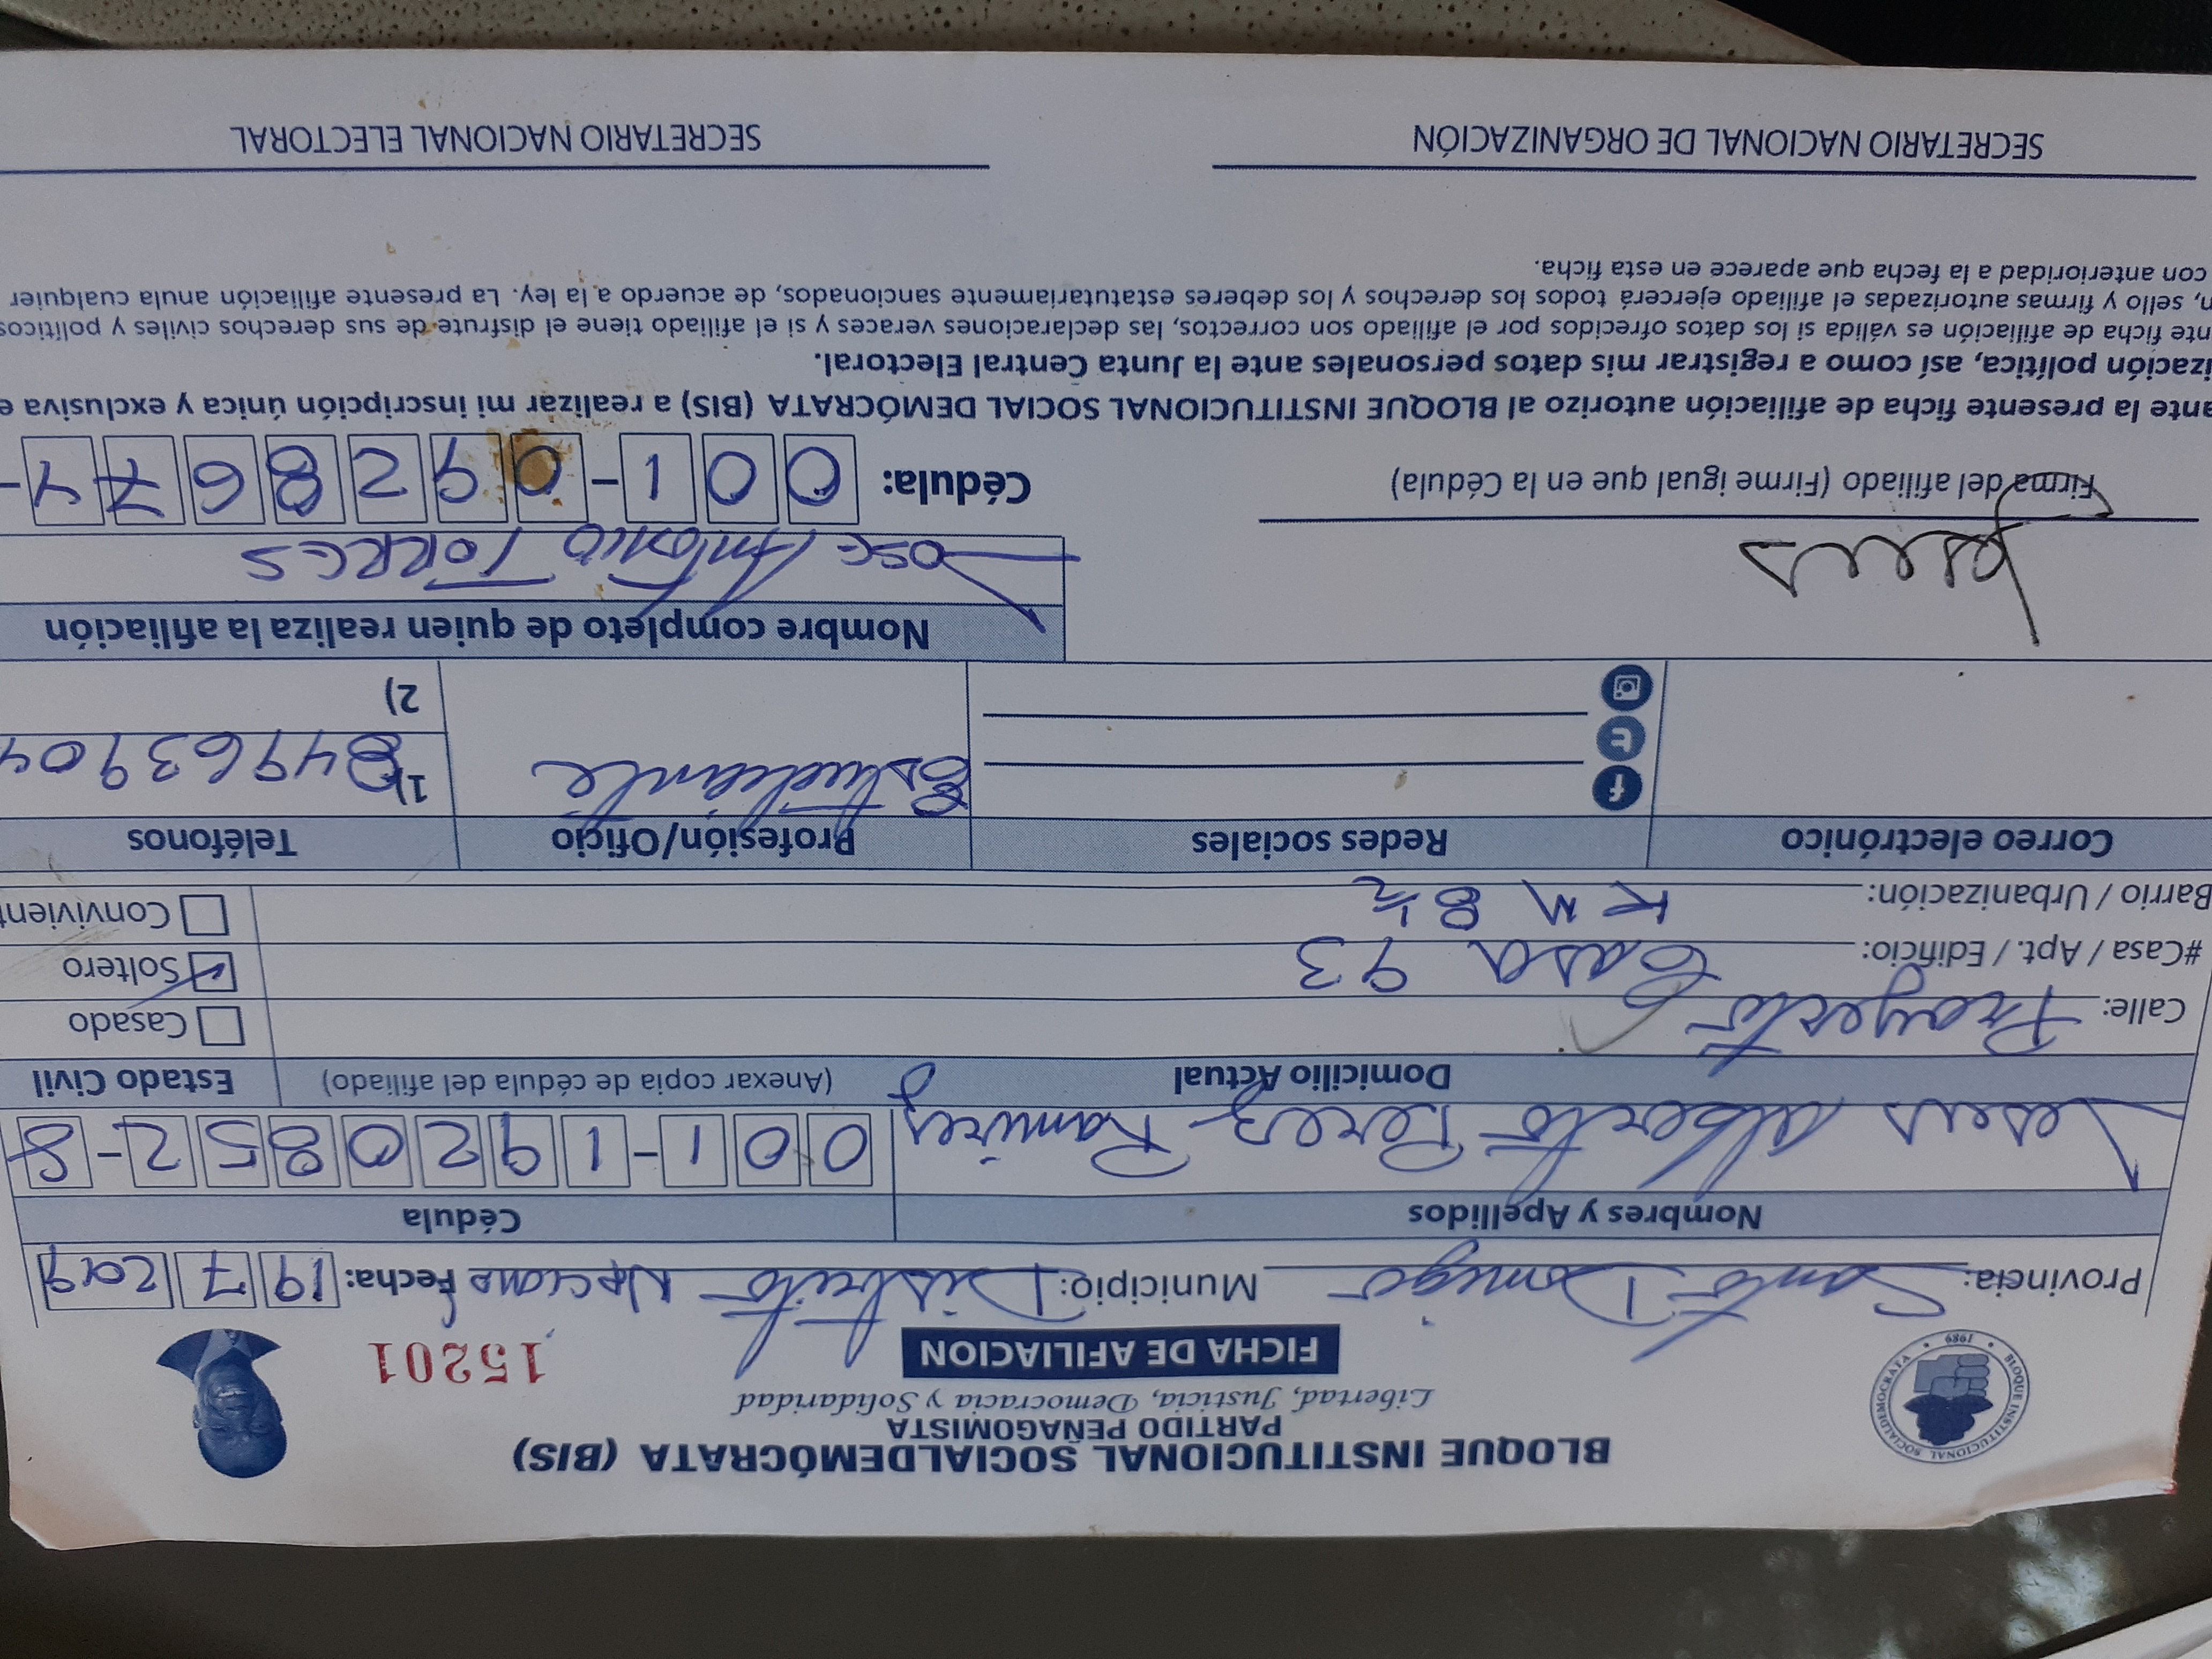 BLOQUE INSTITUCIONAL SOCIALDEMÓCRATA (BIS)
PARTIDO PEÑAGOMISTA
Libertad, Justicia, Democracia y Solidaridad
FICHA DE AFILIACION
15201
BLOQUE INSTITUCIONAL SOCIALDEMOCRATA • 1989 •
Provincia: Santo Domigo Municipio: Distrito Nacional Fecha: 19 7 2019
Nombres y Apellidos Cédula
Jesus Alberto Perez Ramirez 001-1920852-8
Domicilio Actual (Anexar copia de cédula del afiliado) Estado Civil
Calle: Proyecto 6 Casado
#Casa / Apt. / Edificio: Casa 93 Soltero
Barrio / Urbanización: KM 8 1/2 Convivient
Correo electrónico Redes sociales Profesión/Oficio Teléfonos
Estudiante 1) 84963904
2)
Nombre completo de quien realiza la afiliación
Jesus Jose Antonio TORRES
Firma del afiliado (Firme igual que en la Cédula) Cédula: 001-0928674-
ante la presente ficha de afiliación autorizo al BLOQUE INSTITUCIONAL SOCIAL DEMÓCRATA (BIS) a realizar mi inscripción única y exclusiva e
ización política, así como a registrar mis datos personales ante la Junta Central Electoral.
nte ficha de afiliación es válida si los datos ofrecidos por el afiliado son correctos, las declaraciones veraces y si el afiliado tiene el disfrute de sus derechos civiles y políticos
n, sello y firmas autorizadas el afiliado ejercerá todos los derechos y los deberes estatutariamente sancionados, de acuerdo a la ley. La presente afiliación anula cualquier
con anterioridad a la fecha que aparece en esta ficha.
SECRETARIO NACIONAL DE ORGANIZACIÓN SECRETARIO NACIONAL ELECTORAL